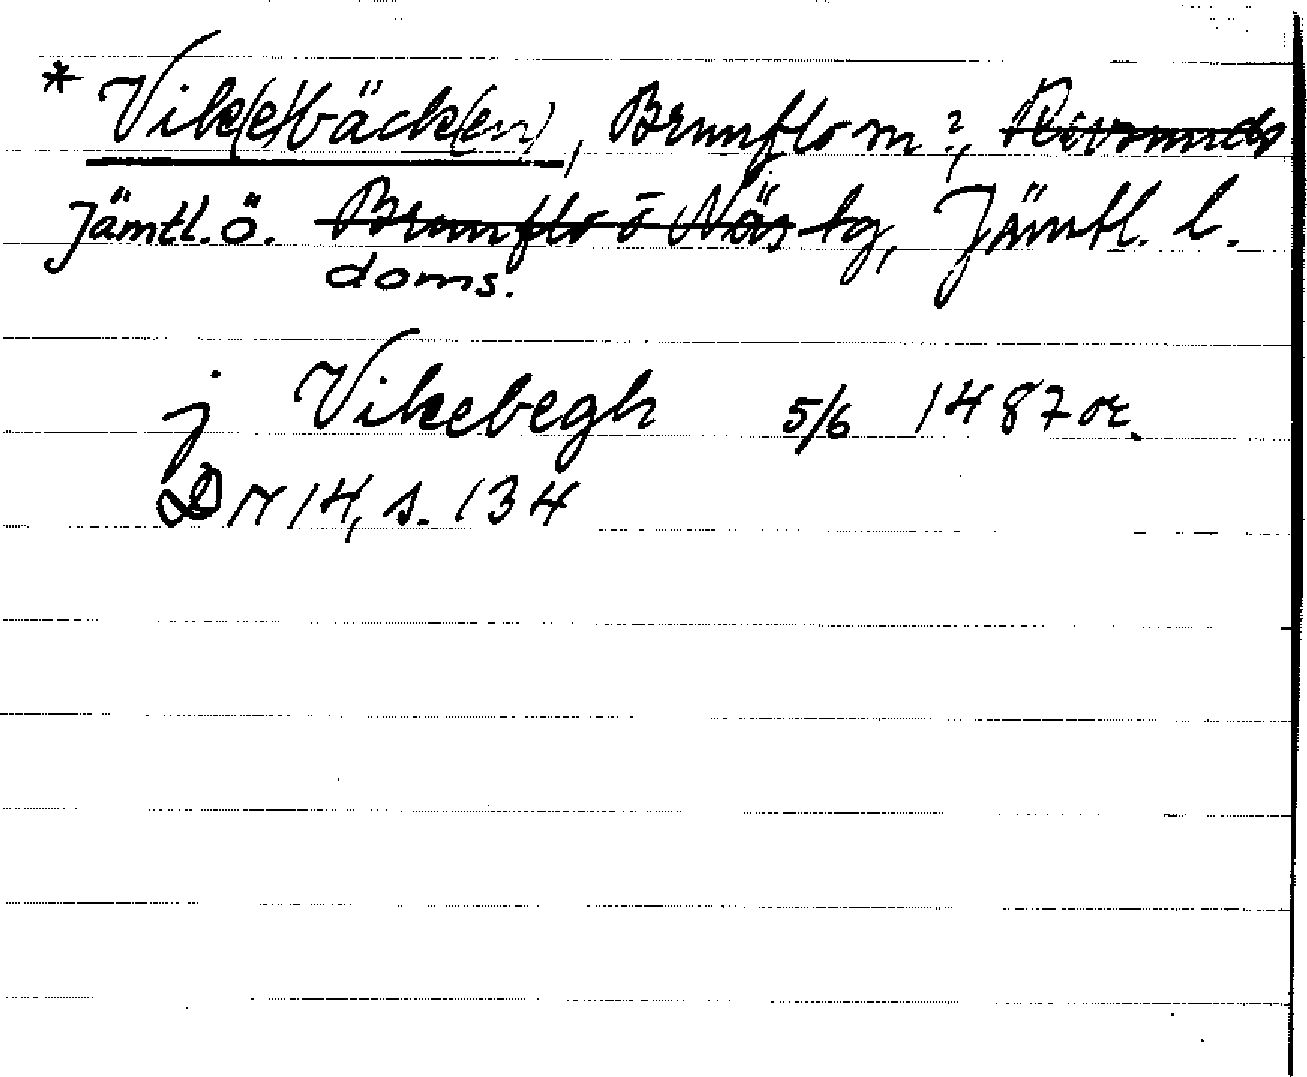 * Vik(e)bäck(en), Brunflo sn?, Revsunds
Jämtl. ö. Brunflo o Näs tg, Jämtl. l.
doms.
j Vikebegh 5/6 1487 or.
DN 14, s. 134